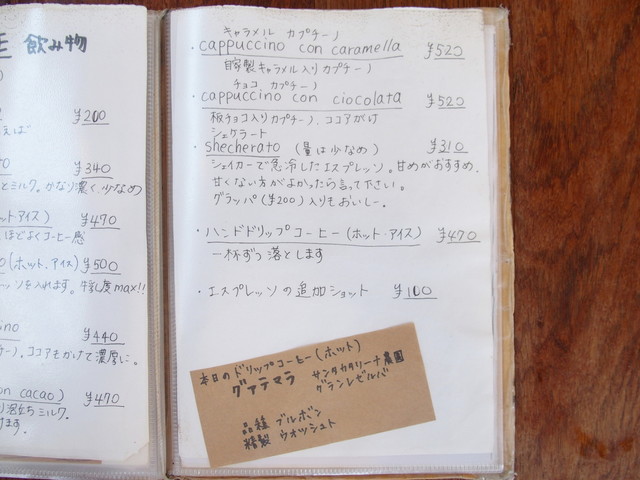 飲み物
¥200
えば
¥340
とミルク。かなり濃く、少なめ
ットアイス) ¥470
ほどよくコーヒー感
(ホット、アイス) ¥500
ッソを入れます。牛乳度max!!
ino ¥440
チーノ、ココアもかけて濃厚に。
on cacao) ¥470
泡立ちミルク。
けます。
キャラメル カプチーノ
・cappuccino con caramella ¥520
自家製キャラメル入りカプチーノ
チョコ カプチーノ
・cappuccino con ciocolata ¥520
板チョコ入りカプチーノ、ココアがけ
シェケラート
・shecherato (量は少なめ) ¥310
シェイカーで急冷したエスプレッソ。甘めがおすすめ。
甘くない方がよかったら言って下さい。
グラッパ(¥200)入りもおいしー。
・ハンドドリップコーヒー(ホット・アイス) ¥470
一杯ずつ落とします
・エスプレッソの追加ショット ¥100
本日のドリップコーヒー(ホット)
グァテマラ サンタカタリーナ農園
グランレゼルバ
品種 ブルボン
精製 ウオッシュト